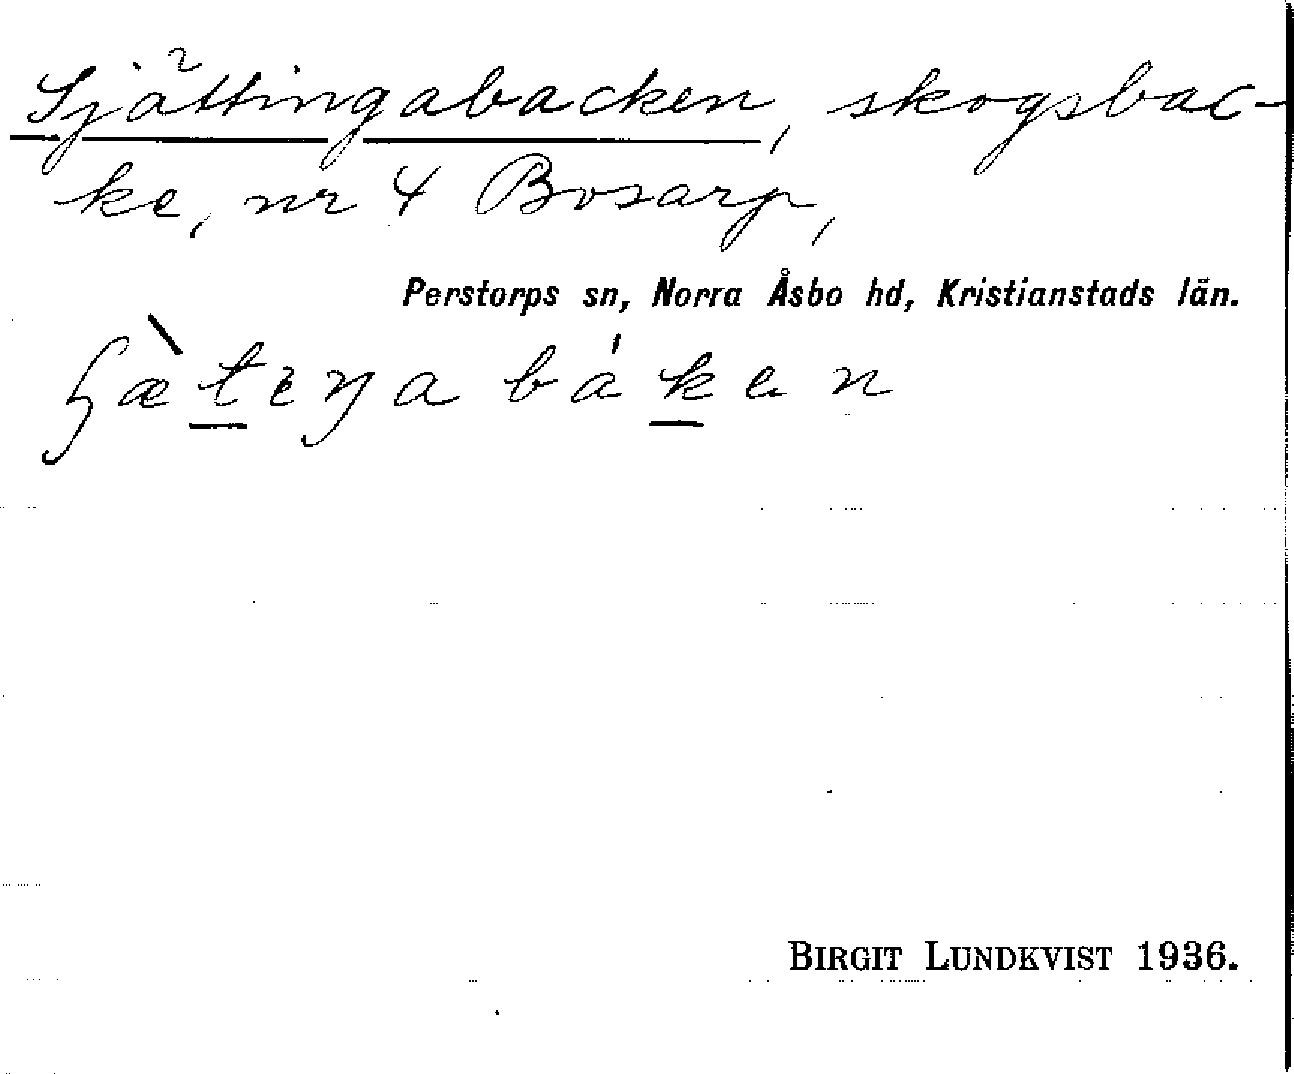 Sjättingabacken, skogsbac-
ke, nr 4 Bosarp,
Perstorps sn, Norra Åsbo hd, Kristianstads län.
BIRGIT LUNDKVIST 1936.